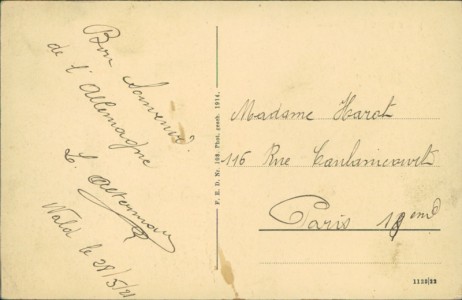 Bon Souvenir
de l'Allemagne
L. Ackermann
Wald le 28/5/21
F. E. D. Nr. 168. Phot. gesch. 1914.
Madame Harot
116 Rue Caulaincourt
Paris 18 eme
1125/22